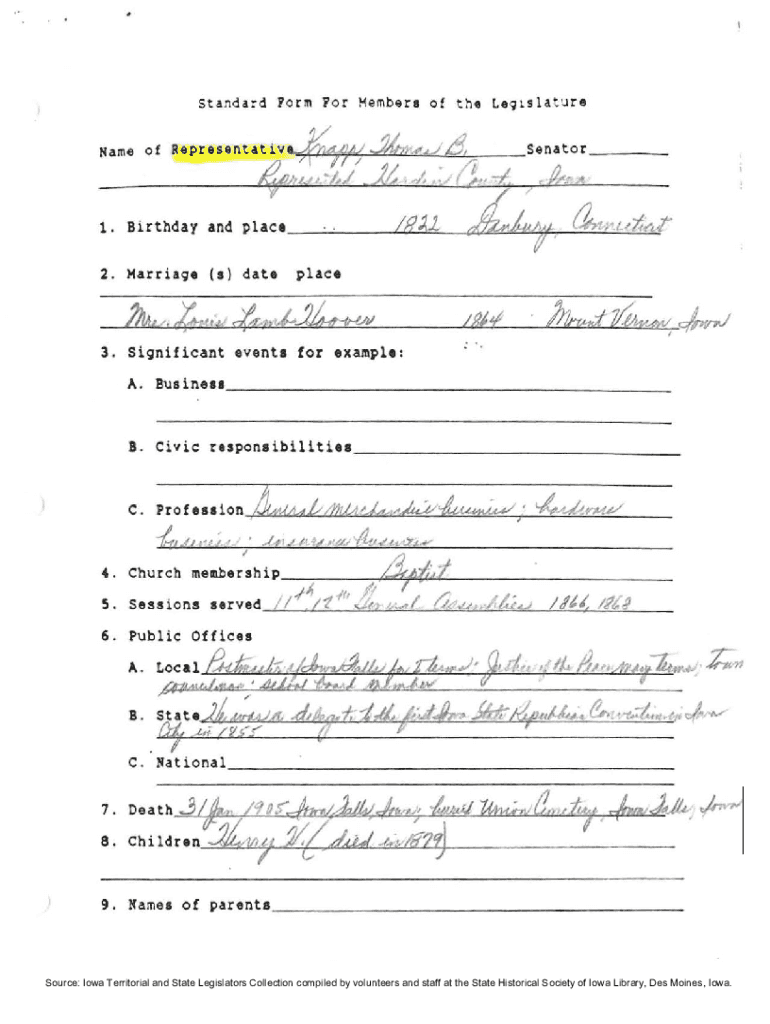 Standard Form For Members of the Legislature
Name of Representative Knapp, Thomas B. Senator
Represented Hardin County, Iowa
1. Birthday and place 1822 Danbury, Connecticut
2. Marriage (s) date place
Mrs. Louis Lamb Hoover 1864 Mount Vernon, Iowa
3. Significant events for example:
A. Business
B. Civic responsibilities
C. Profession General merchandise business; hardware
business; insurance business
4. Church membership Baptist
5. Sessions served 11th, 12th General Assemblies 1866, 1868
6. Public Offices
A. Local Postmaster of Iowa Falls for terms; Justice of the Peace many terms; town
councilman; school board member
B. State He was a delegate to the first Iowa State Republican Convention in Iowa
City in 1855
C. National
7. Death 31 Jan 1905 Iowa Falls, Iowa; buried Union Cemetery, Iowa Falls, Iowa
8. Children Henry H. (died in 1879)
9. Names of parents
Source: Iowa Territorial and State Legislators Collection compiled by volunteers and staff at the State Historical Society of Iowa Library, Des Moines, Iowa.